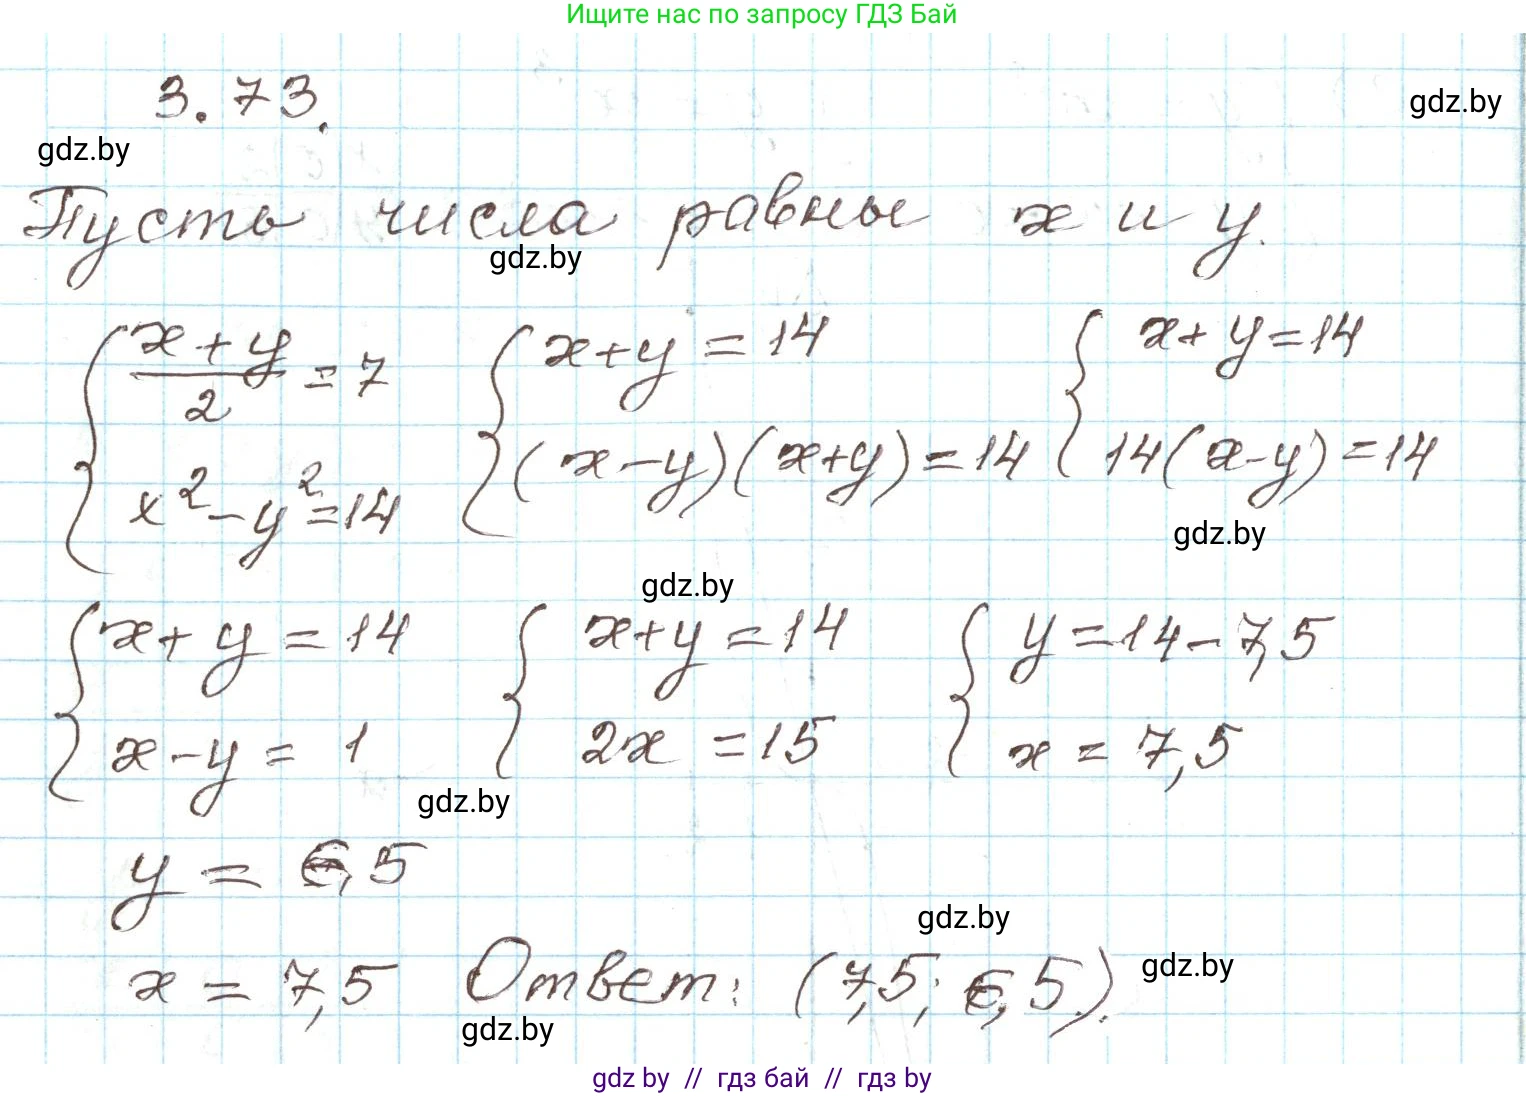 Ищите нас по запросу ГДЗ Бай
3.73.
gdz.by
gdz.by
Пусть числа равны x и y.
gdz.by
{ (x+y)/2 = 7 { x+y = 14 { x+y=14
x²-y²=14 (x-y)(x+y)=14 14(x-y)=14
gdz.by
gdz.by
{ x+y=14 { x+y=14 { y=14-7,5
x-y=1 2x=15 x=7,5
gdz.by
y = 6,5
gdz.by
x = 7,5 Ответ: (7,5; 6,5).
gdz.by
gdz.by
gdz by // гдз бай // гдз by